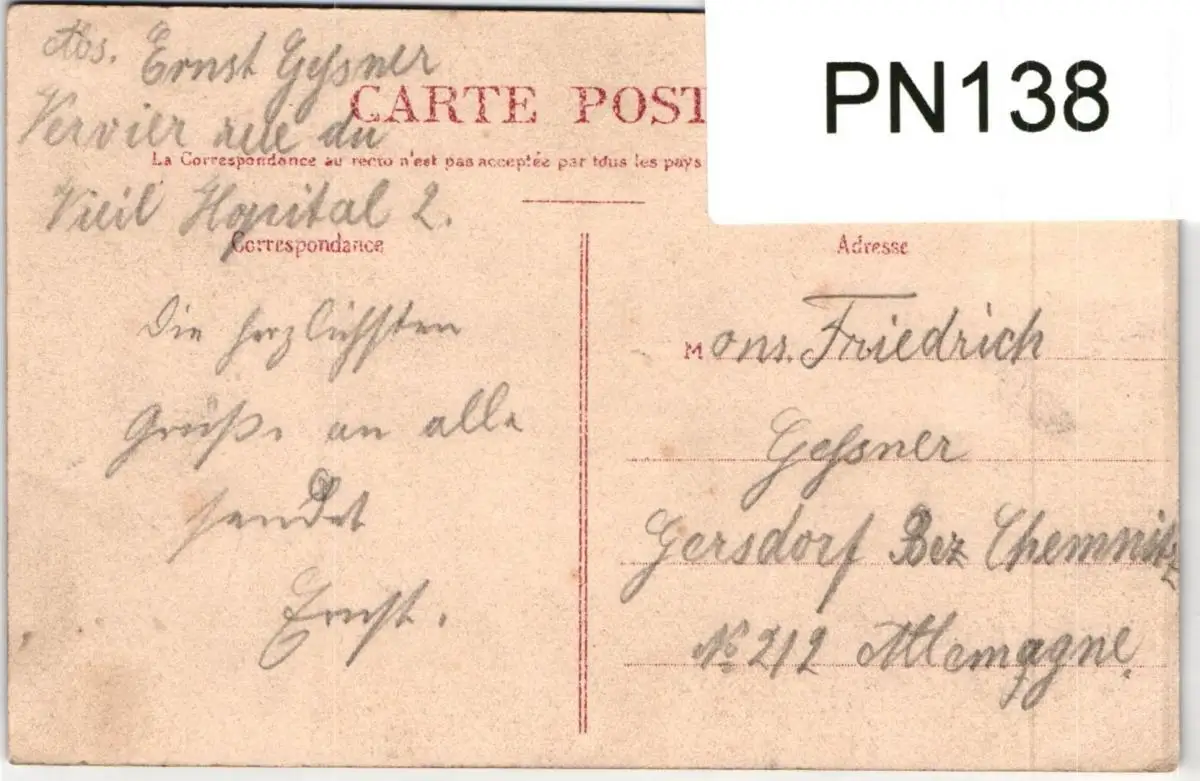 Abs. Ernst Geßner
CARTE POST
PN138
Vervier rue du
La Correspondance au recto n'est pas acceptée par tous les pays
Vieil Hopital 2.
Correspondance
Adresse
Die herzlichsten
Grüße an alle
sendet
Ernst.
Mons. Friedrich
Geßner
Gersdorf Bez Chemnitz
No 212 Allemagne.